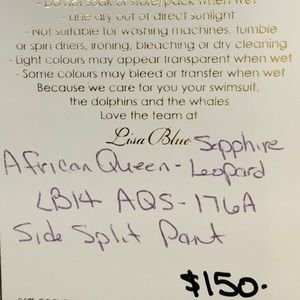 - Do not soak or store/pack when wet
- Line dry out of direct sunlight
- Not suitable for washing machines, tumble
or spin driers, ironing, bleaching or dry cleaning
- Light colours may appear transparent when wet
- Some colours may bleed or transfer when wet
Because we care for you your swimsuit,
the dolphins and the whales
Love the team at
Lisa Blue
Sapphire
African Queen - Leopard
LB14 AQS-176A
Side Split Pant
$150.